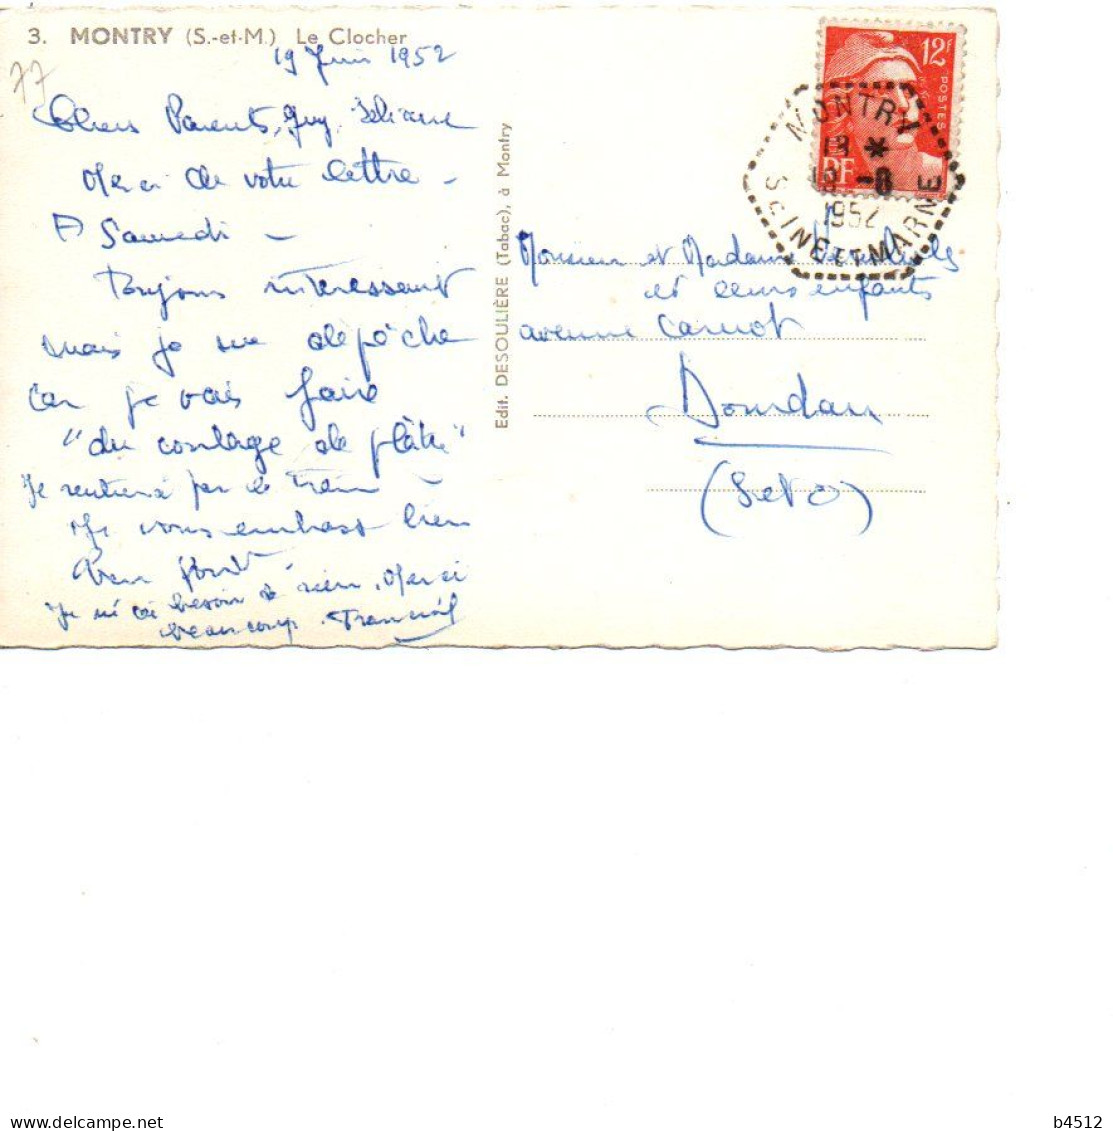 3. MONTRY (S.-et-M.) Le Clocher
19 Juin 1952
77
Chers Parents, Guy,
Merci de votre lettre -
A Samedi -
Toujours interessant
mais je me dépêche
car je vais faire
"du coulage de plâtre"
Je rentrerai par le train -
Je vous embrasse bien
bien fort
Je n'ai besoin de rien. Merci
beaucoup.
Edit. DESOULIÈRE (Tabac), à Montry
12F
POSTES
RF
MONTRY
13 *
1952
SEINE ET MARNE
Monsieur et Madame
et leurs enfants
avenue Carnot
Dourdan
(S et O)
b4512